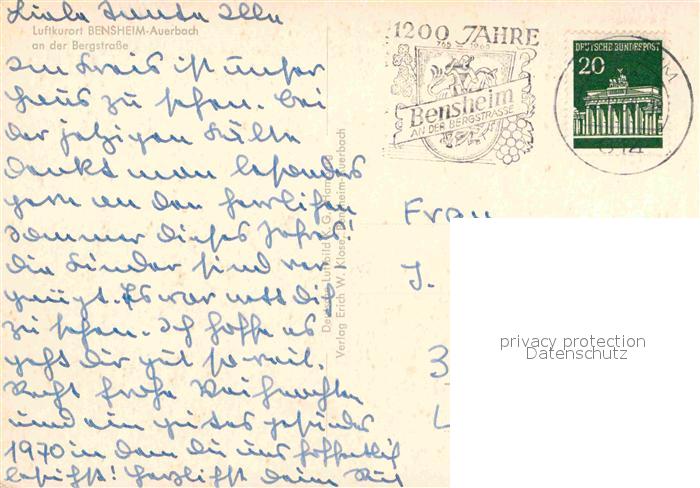 Liebe Tante Illa
Luftkurort BENSHEIM-Auerbach
an der Bergstraße
Im Kreis ist unser
Haus zu sehen. Bei
der jetzigen Kälte
denkt man besonders
gern an den herrlichen
Sommer dieses Jahres!
Die Kinder sind ver
gnügt. Es war nett dich
zu sehen. Ich hoffe es
geht dir gut so weit.
Recht frohe Weihnachten
und ein gutes gesundes
1970 in dem du uns hoffentlich
besuchst! Herzlichst deine
Deutsche Luftbild K. G., Hamburg
Verlag Erich W. Klose, Bensheim-Auerbach
1200 JAHRE
765 1965
Bensheim
AN DER BERGSTRASSE
DEUTSCHE BUNDESPOST
20
Frau
J.
3
L
privacy protection
Datenschutz